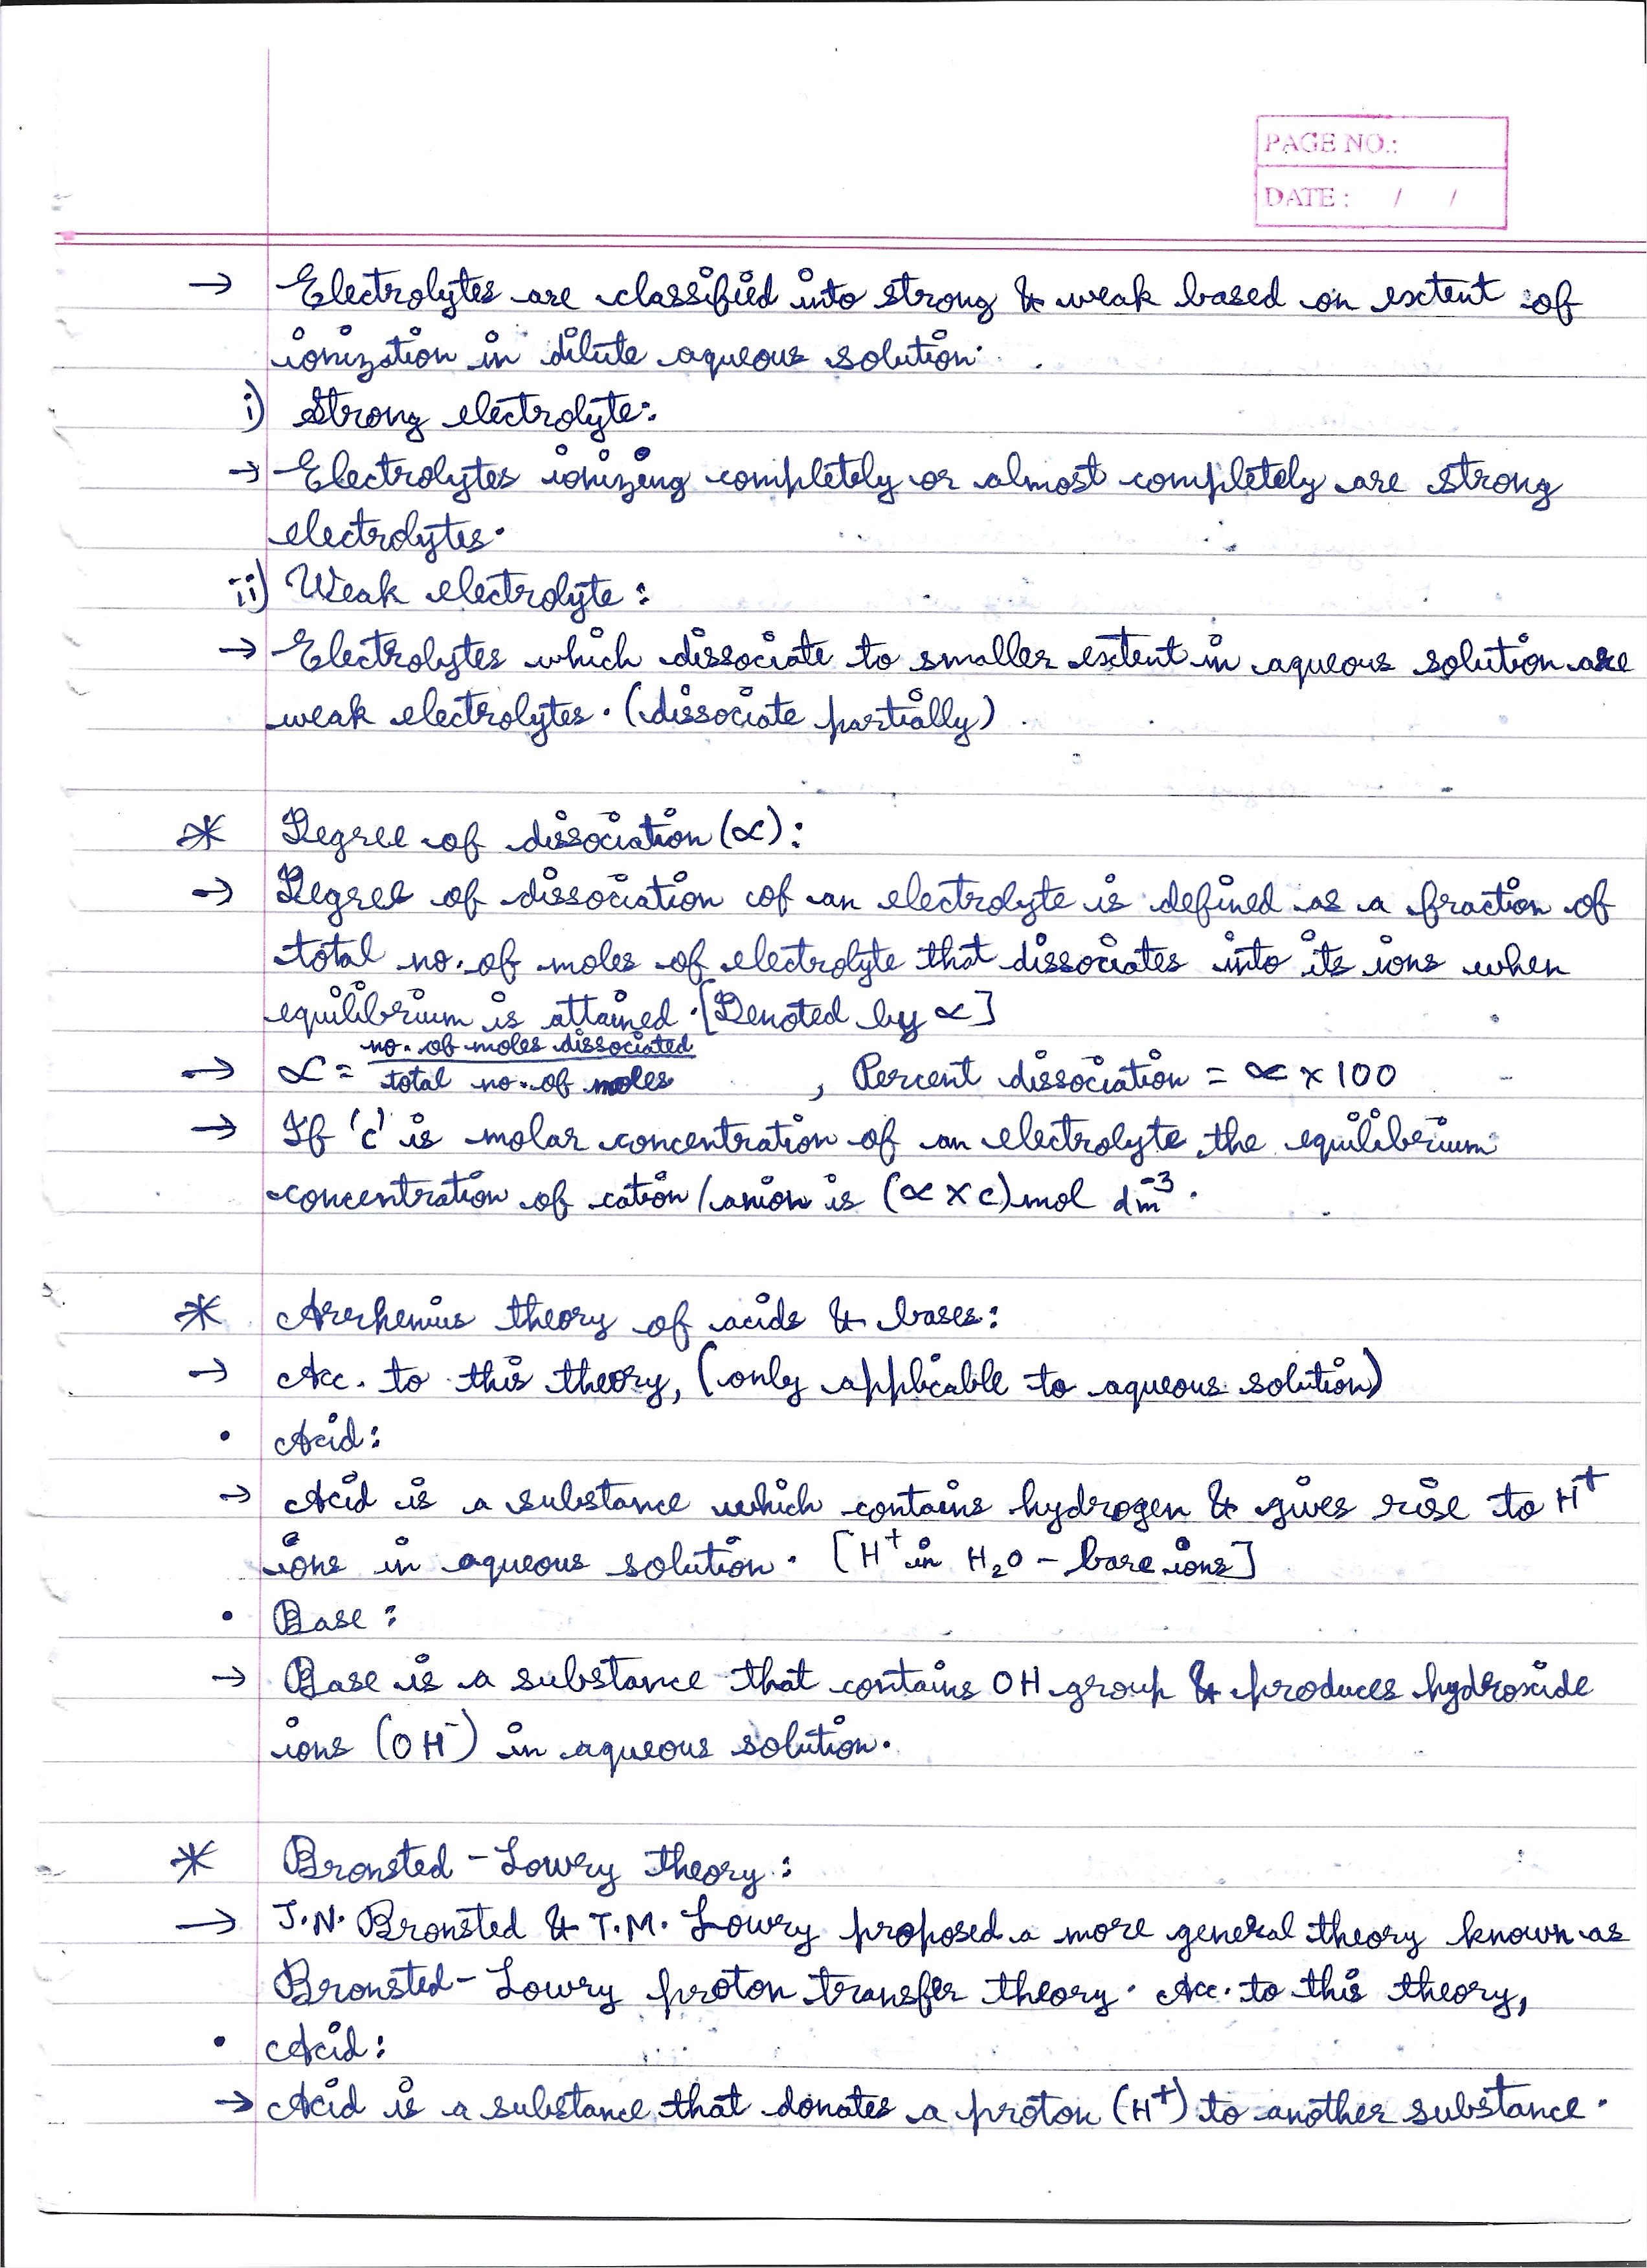 PAGE NO.:
DATE : / /
→ Electrolytes are classified into strong & weak based on extent of
ionization in dilute aqueous solution.
i) Strong electrolyte:
→ Electrolytes ionizing completely or almost completely are strong
electrolytes.
ii) Weak electrolyte :
→ Electrolytes which dissociate to smaller extent in aqueous solution are
weak electrolytes. (dissociate partially)
* Degree of dissociation (∝) :
→ Degree of dissociation of an electrolyte is defined as a fraction of
total no. of moles of electrolyte that dissociates into its ions when
equilibrium is attained. [Denoted by ∝]
no. of moles dissociated
→ ∝ = total no. of moles , Percent dissociation = ∝ × 100
→ If 'c' is molar concentration of an electrolyte, the equilibrium
concentration of cation/anion is (∝ × c) mol dm⁻³.
* Arrhenius theory of acids & bases:
→ Acc. to this theory, (only applicable to aqueous solution)
• Acid:
→ Acid is a substance which contains hydrogen & gives rise to H⁺
ions in aqueous solution. [H⁺ in H₂O – bare ions]
• Base :
→ Base is a substance that contains OH group & produces hydroxide
ions (OH⁻) in aqueous solution.
* Bronsted – Lowry theory :
→ J.N. Bronsted & T.M. Lowry proposed a more general theory known as
Bronsted – Lowry proton transfer theory. Acc. to this theory,
• Acid :
→ Acid is a substance that donates a proton (H⁺) to another substance.